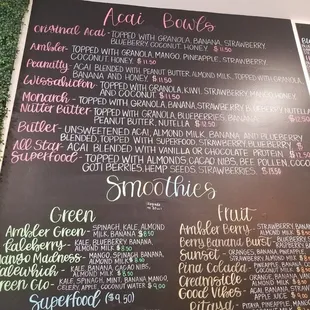 Acai Bowls
Original Acai - TOPPED WITH GRANOLA, BANANA, STRAWBERRY,
BLUEBERRY, COCONUT, HONEY. $11.50
Ambler - TOPPED WITH GRANOLA, MANGO, PINEAPPLE, STRAWBERRY,
COCONUT HONEY $11.50
Peanutty - ACAI BLENDED WITH PEANUT BUTTER, ALMOND MILK, TOPPED WITH GRANOLA,
BANANA AND HONEY $11.50
Wissahickon - TOPPED WITH GRANOLA, KIWI, STRAWBERRY, MANGO
AND COCONUT $11.50
Monarch - TOPPED WITH GRANOLA, BANANA, STRAWBERRY, BLUEBERRY, NUTELLA
Nutter Butter - TOPPED WITH GRANOLA, BLUEBERRIES, BANANA, $12.50
PEANUT BUTTER, NUTELLA $12.50
Butler - UNSWEETENED ACAI, ALMOND MILK, BANANA AND BLUEBERRY
BLENDED, TOPPED WITH GRANOLA, STRAWBERRY, BLUEBERRY $
All Star - ACAI BLENDED WITH VANILLA OR CHOCOLATE PROTEIN $12.50
Superfood - TOPPED WITH ALMONDS, CACAO NIBS, BEE POLLEN, COCO
GOTI BERRIES, HEMP SEEDS. $13.50
Smoothies
Green
Ambler Green - SPINACH, KALE, ALMOND
MILK, BANANA $8.50
Kaleberry - KALE, BLUEBERRY, BANANA,
ALMOND MILK $8.50
Mango Madness - MANGO, SPINACH,
BANANA, ALMOND MILK
Kalewhich - KALE, BANANA, CACAO NIBS,
ALMOND MILK
Green Glo - KALE, SPINACH, MINT, BANANA, MANGO,
CELERY, APPLE, COCONUT WATER $9.00
Superfood ($9.50)
Fruit
Ambler Berry - STRAWBERRY, BLUEBERRY
BANANA, ALMOND MILK
Berry Banana Burst - BLUEBERRY
Sunset - ORANGES, BANANA, PINEAPPLE
STRAWBERRY, ALMOND MILK
Pina Colada - PINEAPPLE, BANANA
COCONUT, ALMOND MILK
Creamsicle - ORANGE, BANANA
ALMOND MILK
Good Vibes - ACAI, STRAWBERRY, BANANA
APPLE JUICE $9.00
Pitaya - PITAYA, PINEAPPLE